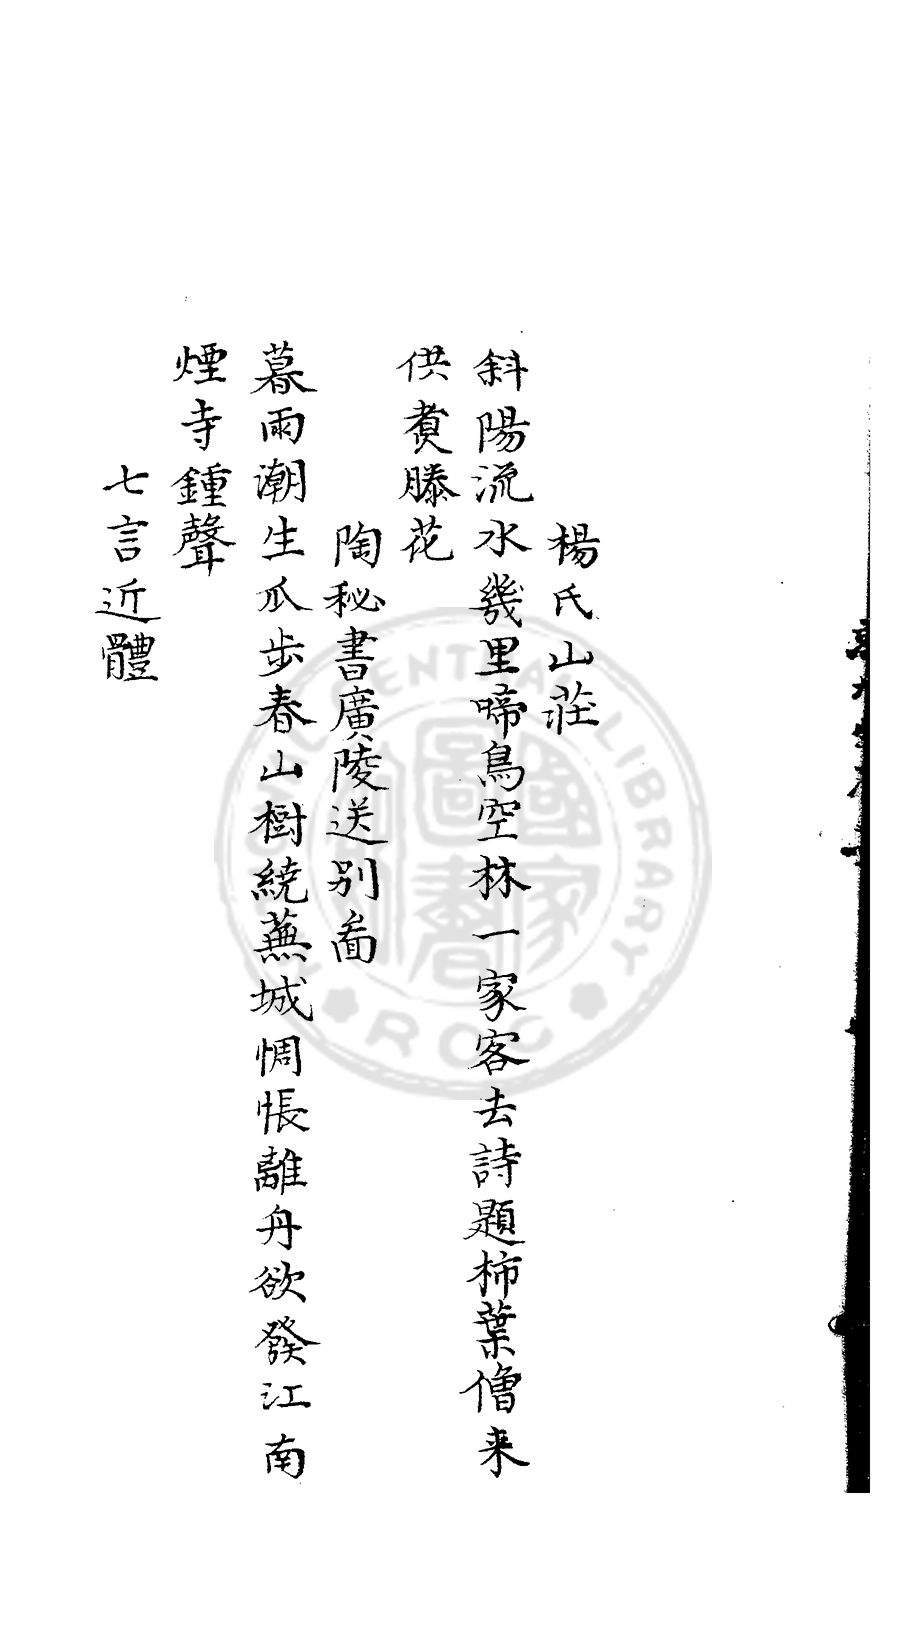 楊氏山莊
斜陽流水幾里啼鳥空林一家客去詩題柿葉僧来
供煑滕花
陶秘書廣陵送别啚
暮雨潮生瓜步春山樹繞蕪城惆悵離舟欲發江南
煙寺鍾聲
七言近體
NATIONAL CENTRAL LIBRARY
ROC
國家圖書